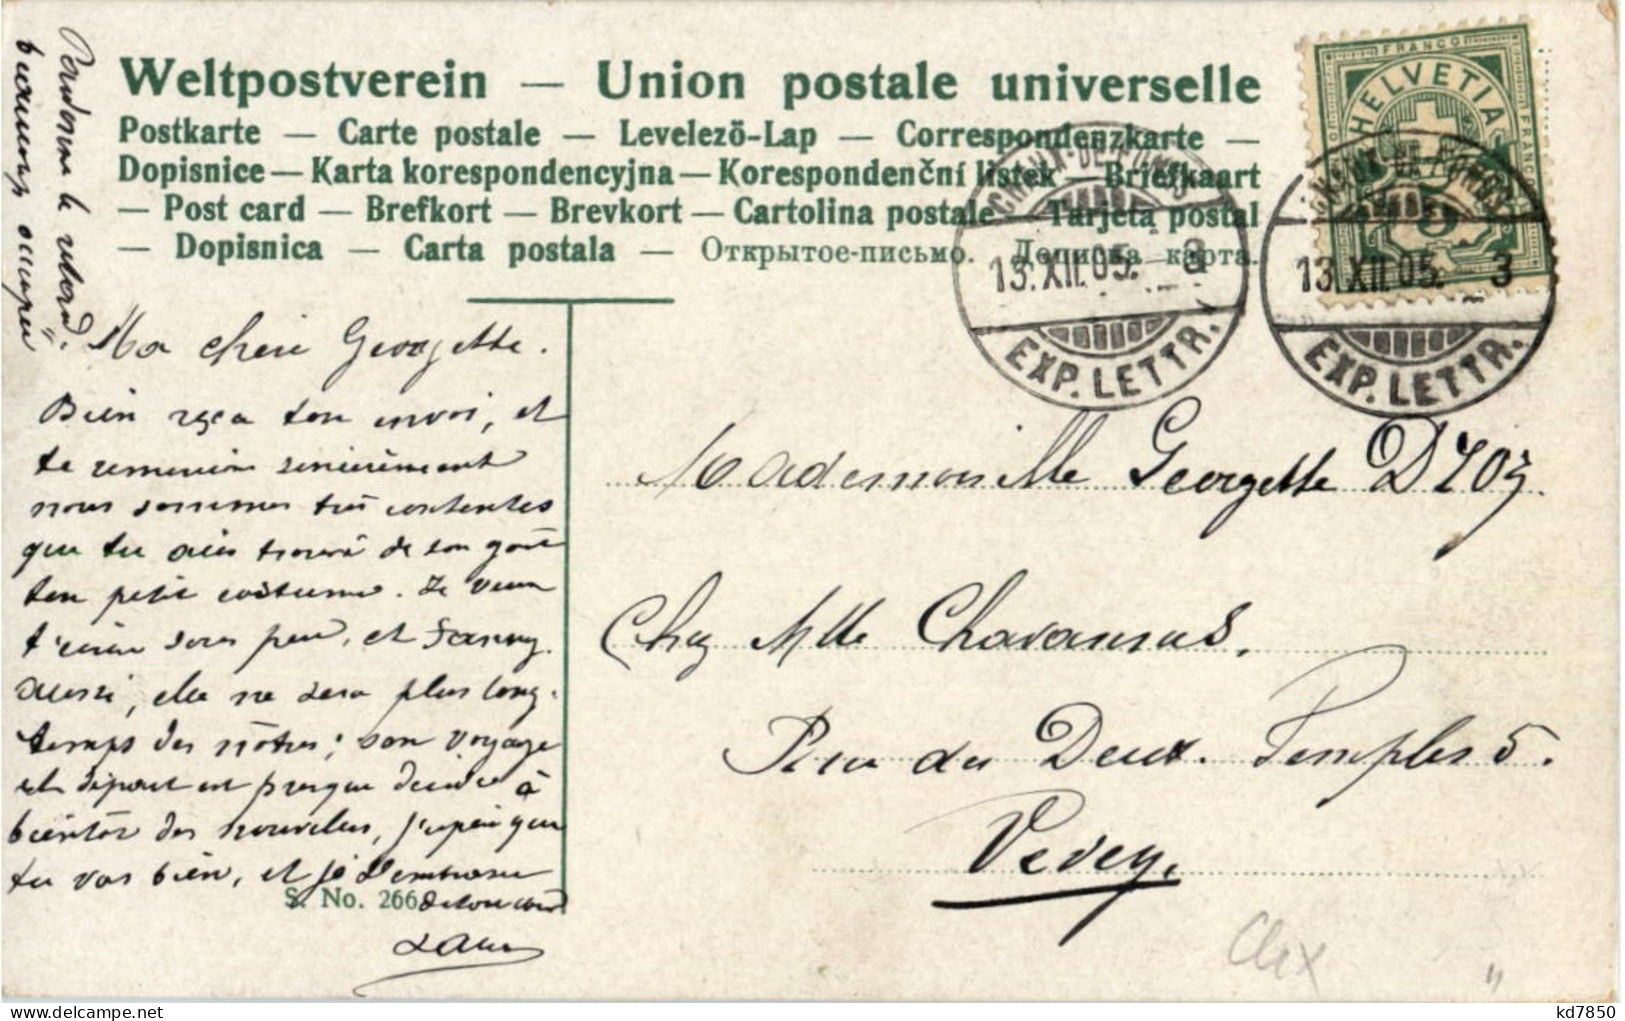 Weltpostverein — Union postale universelle
Postkarte — Carte postale — Levelezõ-Lap — Correspondenzkarte —
Dopisnice — Karta korespondencyjna — Korespondenční lístek — Briefkaart
— Post card — Brefkort — Brevkort — Cartolina postale — Tarjeta postal
— Dopisnica — Carta postala — Открытое-письмо. Дописна карта.
FRANCO
HELVETIA
FRANCO
5
CHAUX-DE-FONDS
13.XII.05. — 3
EXP. LETTR.
CHAUX-DE-FONDS
13.XII.05. — 3
EXP. LETTR.
Pardonne le retard.
beaucoup occupée
Ma chère Georgette.
Bien reçu ton envoi, et
te remercie sincèrement
nous sommes très contentes
que tu aies trouvé de ton goût
ton petit costume. Je veux
t'écrire sous peu, et Fanny
aussi, elle ne sera plus long-
temps des nôtres; son voyage
et départ est presque décidé à
bientôt des nouvelles, j'espère que
tu vas bien, et je t'embrasse
de tout cœur
S. No. 266
Mademoiselle Georgette
Chez Mlle Chavannes.
Rue du Deux. Temples 5.
Vevey.
kd7850